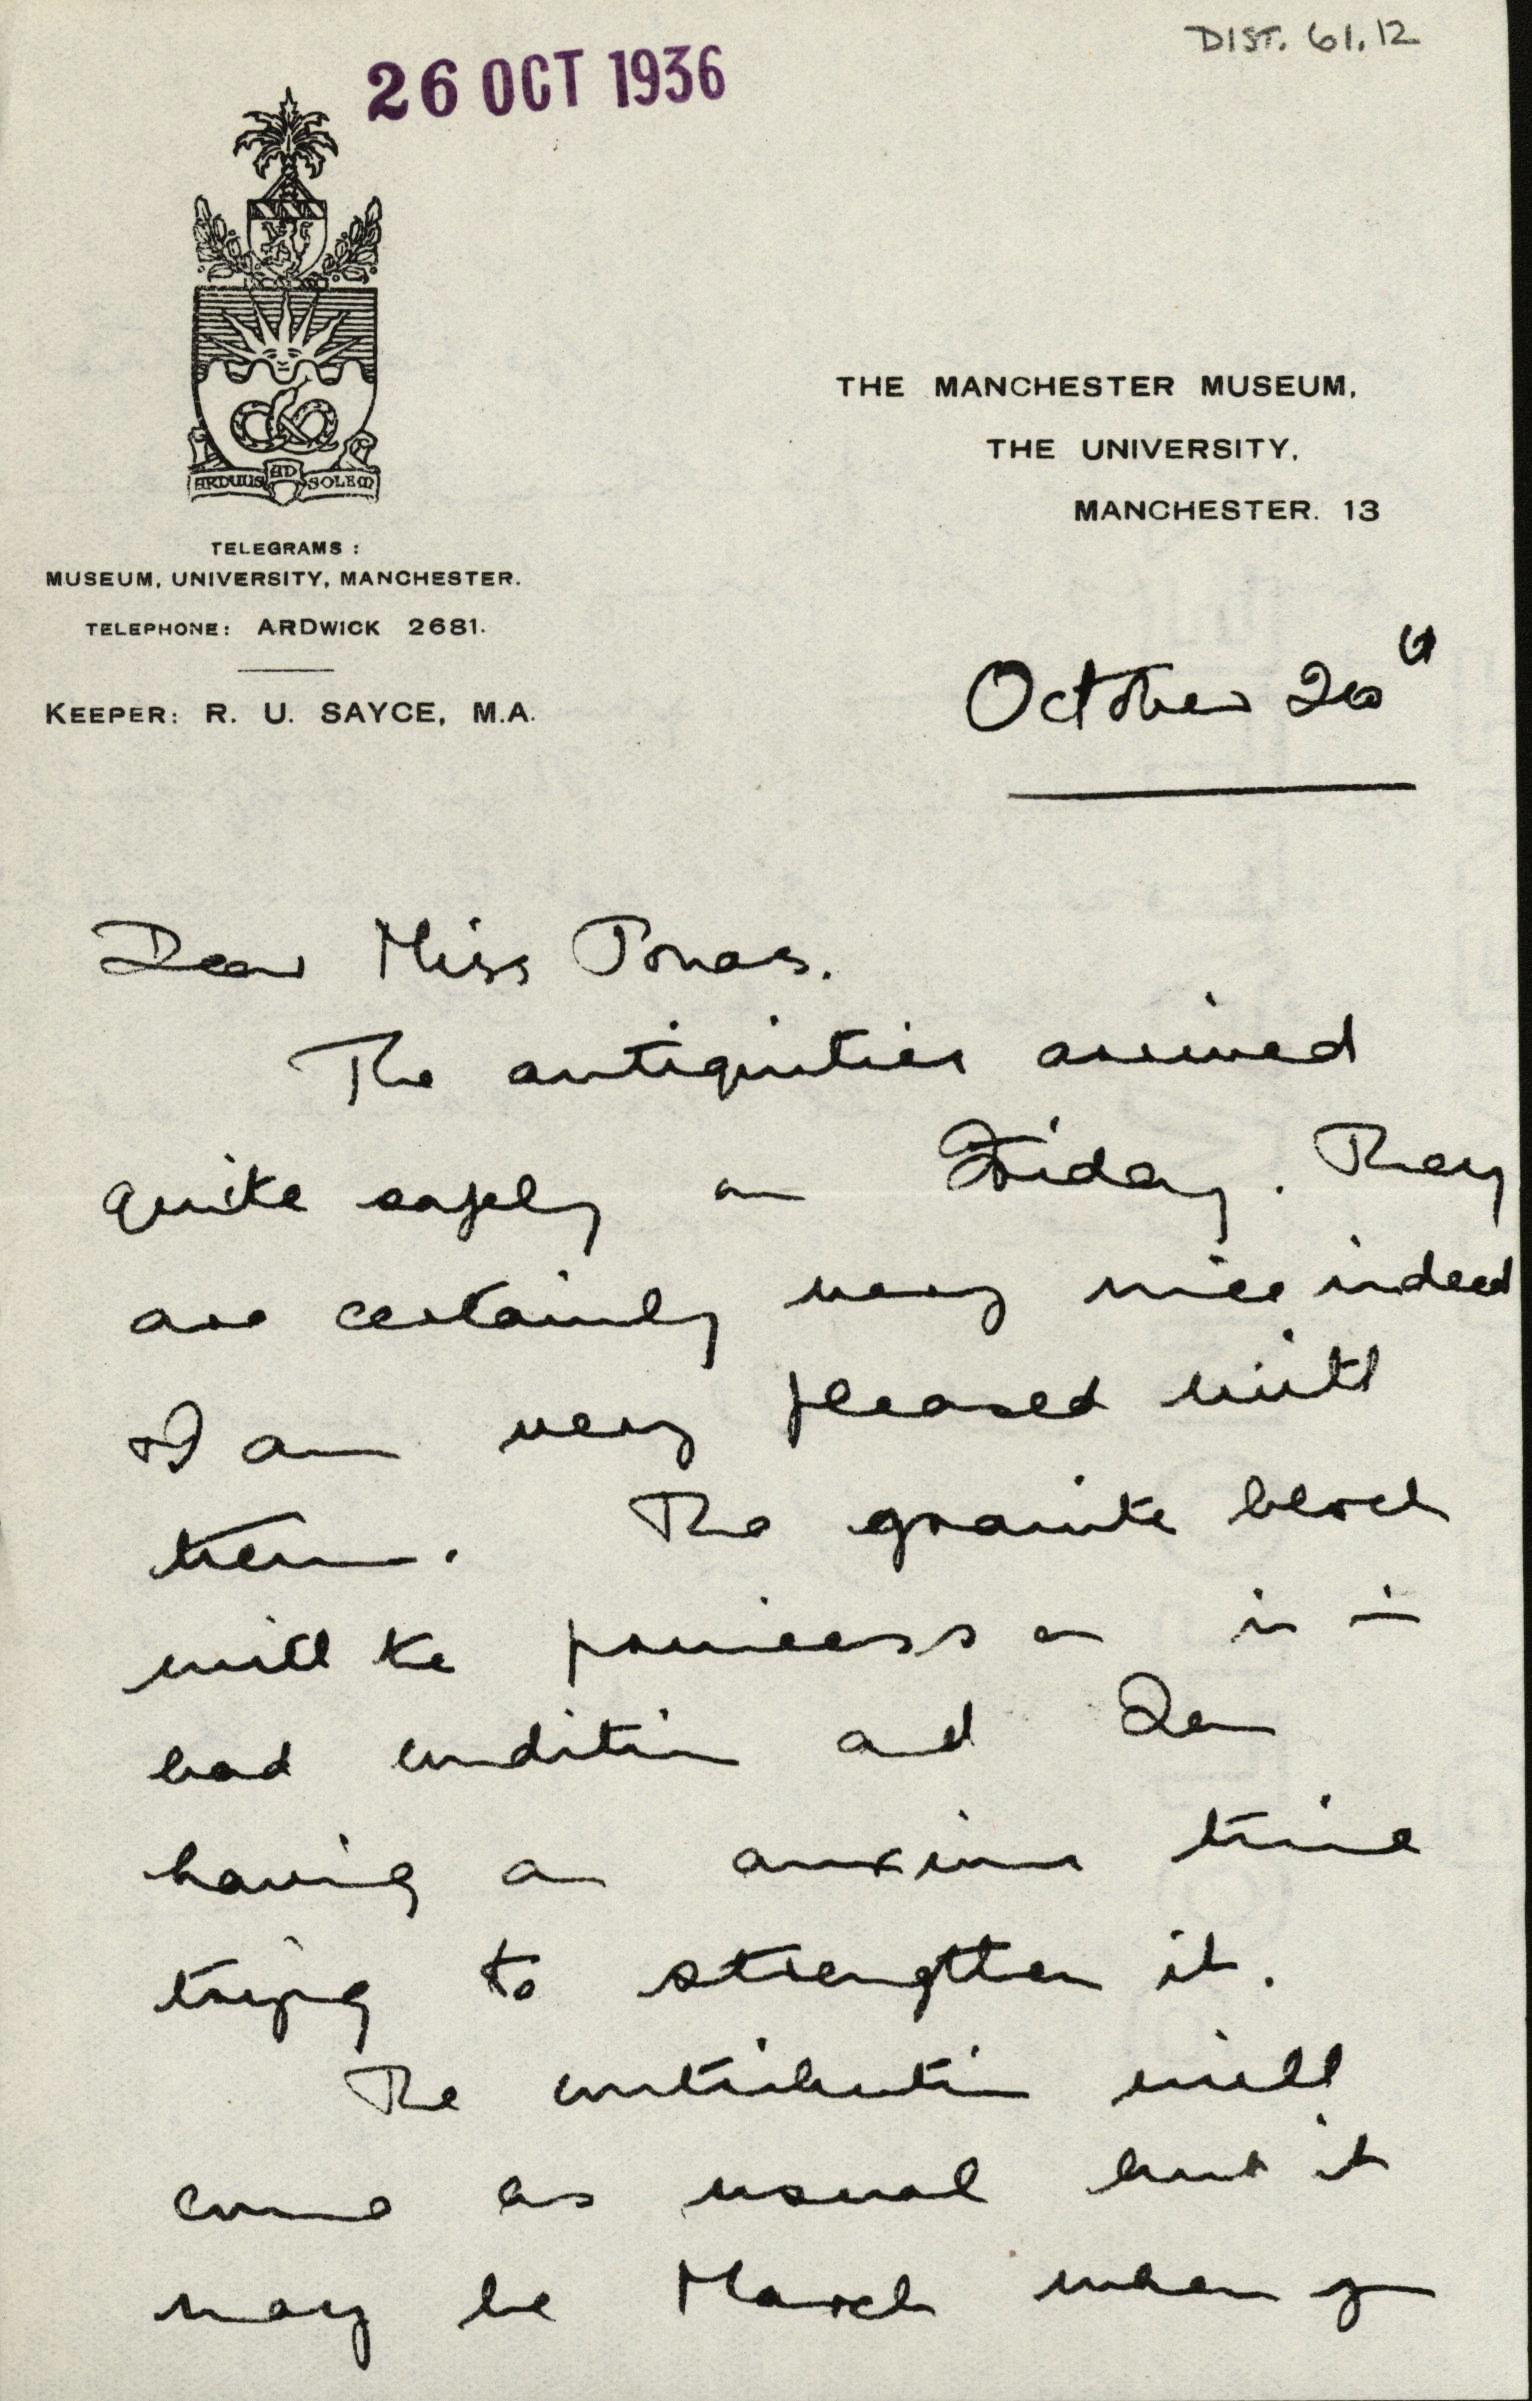 DIST. 61.12
26 OCT 1936
ARDUUS AD SOLEM
TELEGRAMS:
MUSEUM, UNIVERSITY, MANCHESTER.
TELEPHONE: ARDWICK 2681.
KEEPER: R. U. SAYCE, M.A.
THE MANCHESTER MUSEUM,
THE UNIVERSITY,
MANCHESTER. 13
October 20th
Dear Miss Jonas.
The antiquities arrived
quite safely on Friday. They
are certainly very nice indeed
I am very pleased with
them. The granite block
with the princess on is in
bad condition and I am
having an anxious time
trying to strengthen it.
The contribution will
come as usual but it
may be March when